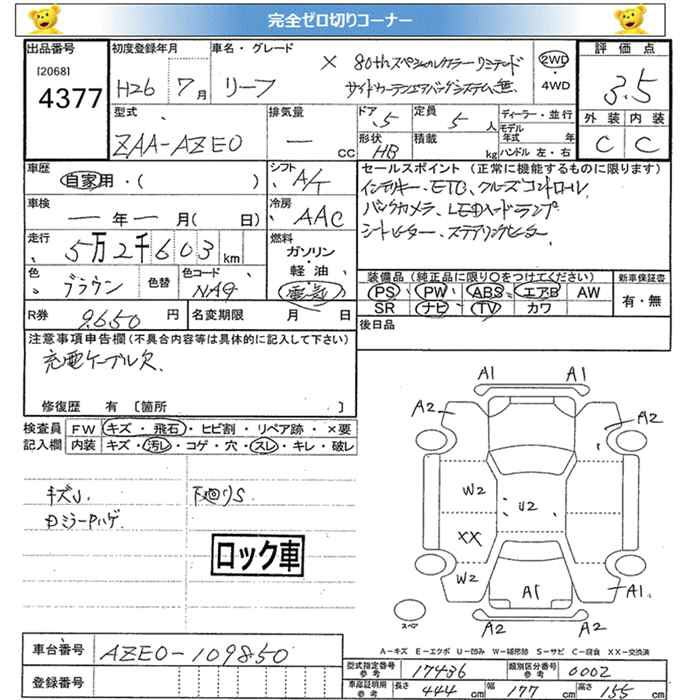 完全ゼロ切りコーナー
出品番号
[2068]
4377
初度登録年月
H26 7月
車名・グレード
リーフ × 80thスペシャルカラーリミテッド
サイドカーテンエアバッグシステム無.
2WD
・
4WD
評価点
3.5
外装 内装
C C
型式
ZAA-AZE0
排気量
— CC
ドア
5
定員
5人
形状
HB
積載
kg
ディーラー・並行
モデル年式 年
ハンドル 左・右
車歴
自家用・( )
シフト
A/T
セールスポイント(正常に機能するものに限ります)
インテリキー、ETC、クルーズコントロール、
バックカメラ、LEDヘッドランプ
シートヒーター、ステアリングヒーター
車検
— 年 — 月( 日)
冷房
AAC
走行
5万2千603km
燃料
ガソリン
・軽油・
電気
色
ブラウン
色替
色コード
NAG
装備品(純正品に限り〇をつけてください)
PS・PW・ABS・エアB AW
SR ナビ・TV カワ
新車保証書
有・無
R券 9650円
名変期限 月 日
後日品
注意事項申告欄(不具合内容等は具体的に記入して下さい)
充電ケーブル欠
修復歴 有 [箇所 ]
検査員記入欄
FW キズ・飛石・ヒビ割・リペア跡・×要
内装 キズ・汚レ・コゲ・穴・スレ・キレ・破レ
キズJ. 下廻りS
ロック車
A1 A1
A2 A2
W2 U2
XX
W2 A1 A1
A2 A2
スペア
A-キズ E-エクボ U-凹み W-補修跡 S-サビ C-腐食 XX-交換済
車台番号 AZE0-109850
登録番号
型式指定番号
参考
17436
類別区分番号
参考
0002
車庫証明用
参考
長さ 444cm 幅 177cm 高さ 155cm